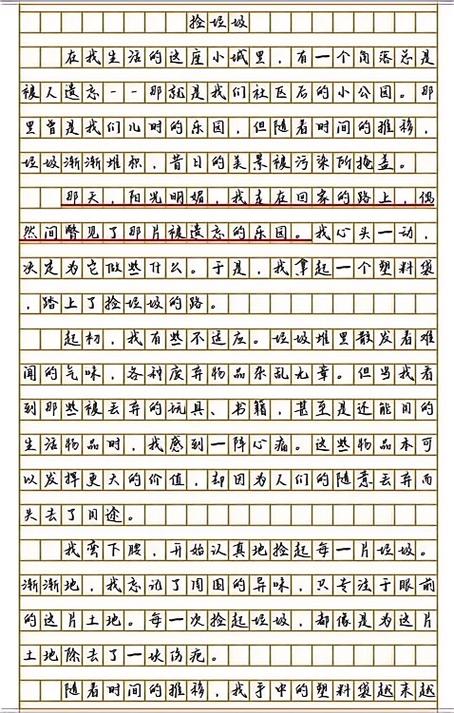 捡垃圾
在我生活的这座小城里，有一个角落总是
被人遗忘--那就是我们社区后的小公园。那
里曾是我们儿时的乐园，但随着时间的推移，
垃圾渐渐堆积，昔日的美景被污染所掩盖。
那天，阳光明媚，我走在回家的路上，偶
然间瞥见了那片被遗忘的乐园。我心头一动，
决定为它做些什么。于是，我拿起一个塑料袋
，踏上了捡垃圾的路。
起初，我有些不适应。垃圾堆里散发着难
闻的气味，各种废弃物品杂乱无章。但当我看
到那些被丢弃的玩具、书籍，甚至是还能用的
生活物品时，我感到一阵心痛。这些物品本可
以发挥更大的价值，却因为人们的随意丢弃而
失去了用途。
我弯下腰，开始认真地捡起每一片垃圾。
渐渐地，我忘记了周围的异味，只专注于眼前
的这片土地。每一次捡起垃圾，都像是为这片
土地除去了一块伤疤。
随着时间的推移，我手中的塑料袋越来越